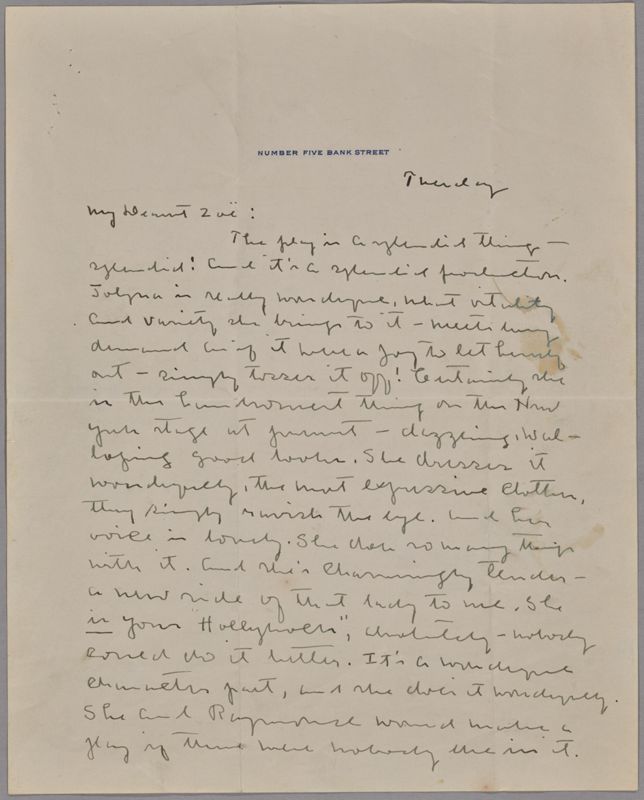 NUMBER FIVE BANK STREET
Tuesday
My Dearest Zoë:
The play is a splendid thing —
splendid! And it's a splendid production.
Jobyna is really wonderful, what vitality
and variety she brings to it — meets every
demand as if it were a joy to let herself
out — simply tosses it off! Certainly she
is the handsomest thing on the New
York stage at present — dazzling, wal-
loping good looks. She dresses it
wonderfully, the most expressive clothes,
they simply ravish the eye. And her
voice is lovely. She does so many things
with it. And she's charmingly tender —
a new side of that lady to me. She
is your "Hollyhock", absolutely — nobody
could do it better. It's a wonderful
character part, and she does it wonderfully.
She and Raymond would make a
play if there were nobody else in it.